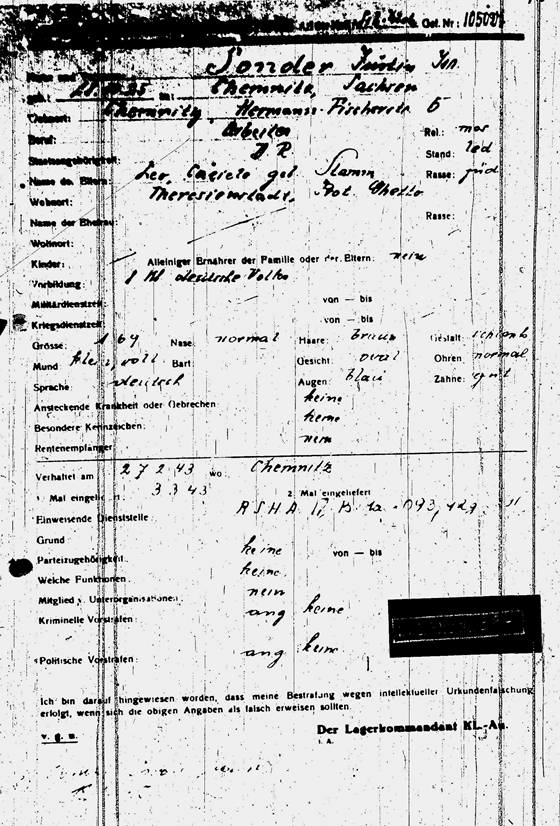 Gef. Nr.: 105021
Sonder Justin Isr.
Chemnitz, Sachsen
Wohnort: Chemnitz, Hermann-Fischerstr 6
Beruf: Arbeiter Rel.: mos
Staatsangehörigkeit: D.R. Stand: led
Name der Eltern: Leo, Cäcilie geb Stamm Rasse: jüd
Wohnort: Theresienstadt, Prot. Ghetto
Name der Ehefrau: Rasse:
Wohnort:
Kinder: Alleiniger Ernährer der Familie oder der Eltern: nein
Vorbildung: 8 Kl deutsche Volks
Militärdienstzeit: von — bis
Kriegsdienstzeit: von — bis
Grösse: 1 69 Nase: normal Haare: braun Gestalt: schlank
Mund: voll Bart: Gesicht: oval Ohren: normal
Sprache: deutsch Augen: blau Zähne: gut
Ansteckende Krankheit oder Gebrechen: keine
Besondere Kennzeichen: keine
Rentenempfänger: nein
Verhaftet am 27 2 43 wo Chemnitz
1. Mal eingeliefert: 3 3 43 2. Mal eingeliefert
Einweisende Dienststelle: RSHA IV B
Grund:
Parteizugehörigkeit: keine von — bis
Welche Funktionen: keine
Mitglied v. Unterorganisationen: nein
Kriminelle Vorstrafen: ang keine
Politische Vorstrafen: ang keine
Ich bin darauf hingewiesen worden, dass meine Bestrafung wegen intellektueller Urkundenfälschung
erfolgt, wenn sich die obigen Angaben als falsch erweisen sollten.
v. g. u. Der Lagerkommandant KL.-Au.
i. A.